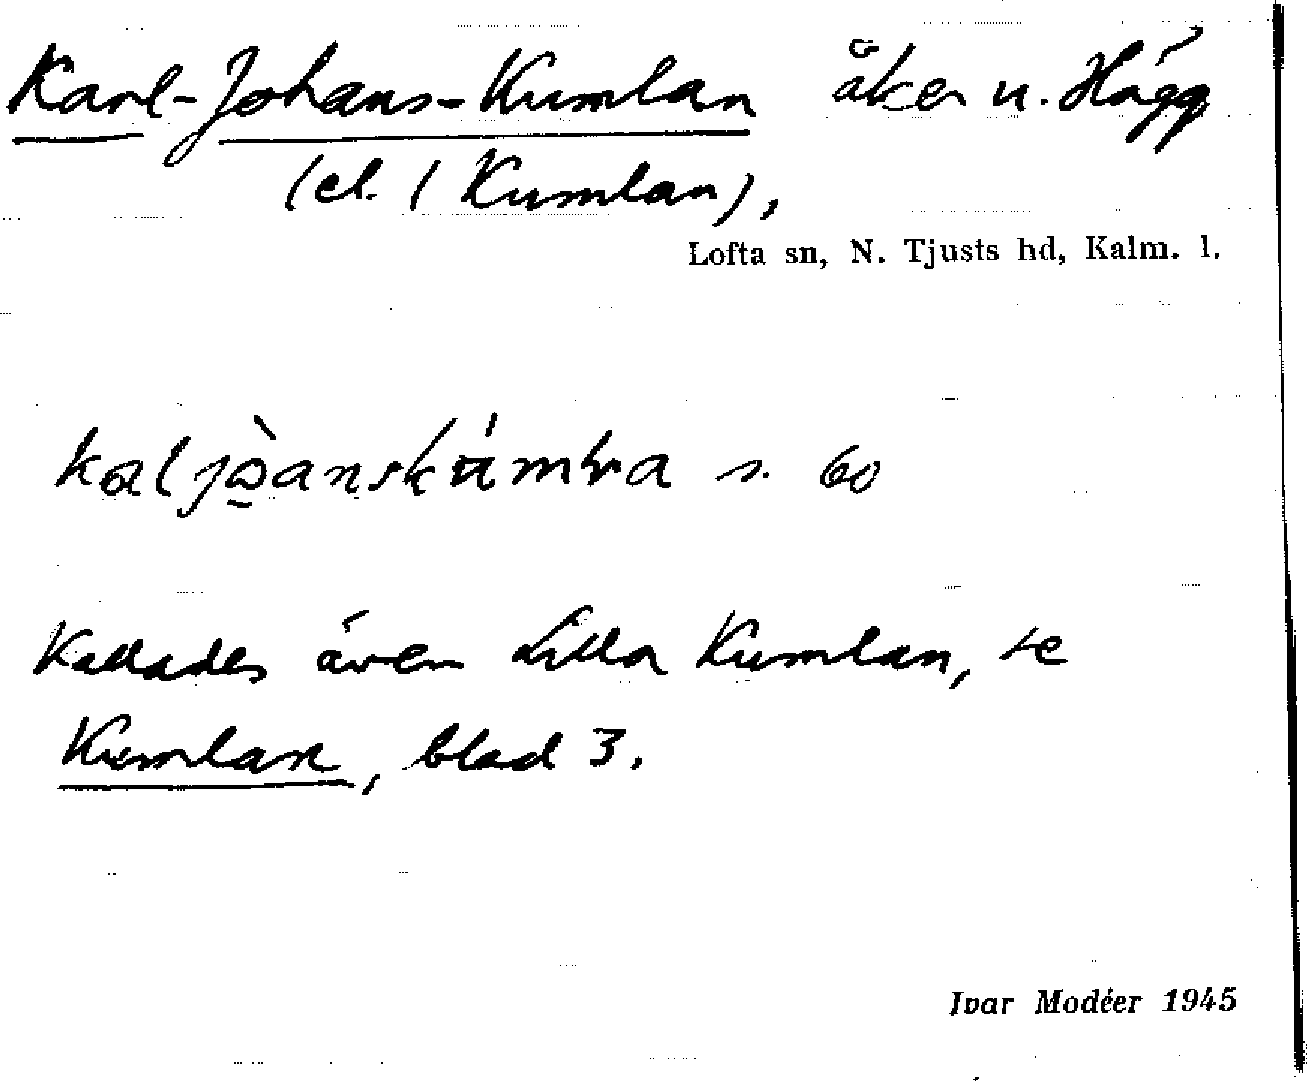 Karl-Johans-Kumlan åker u. Hägg
(el. / Kumlan),
Lofta sn, N. Tjusts hd, Kalm. l.
s. 60
Kallades även Lilla Kumlan, se
Kumlan, blad 3.
Ivar Modéer 1945